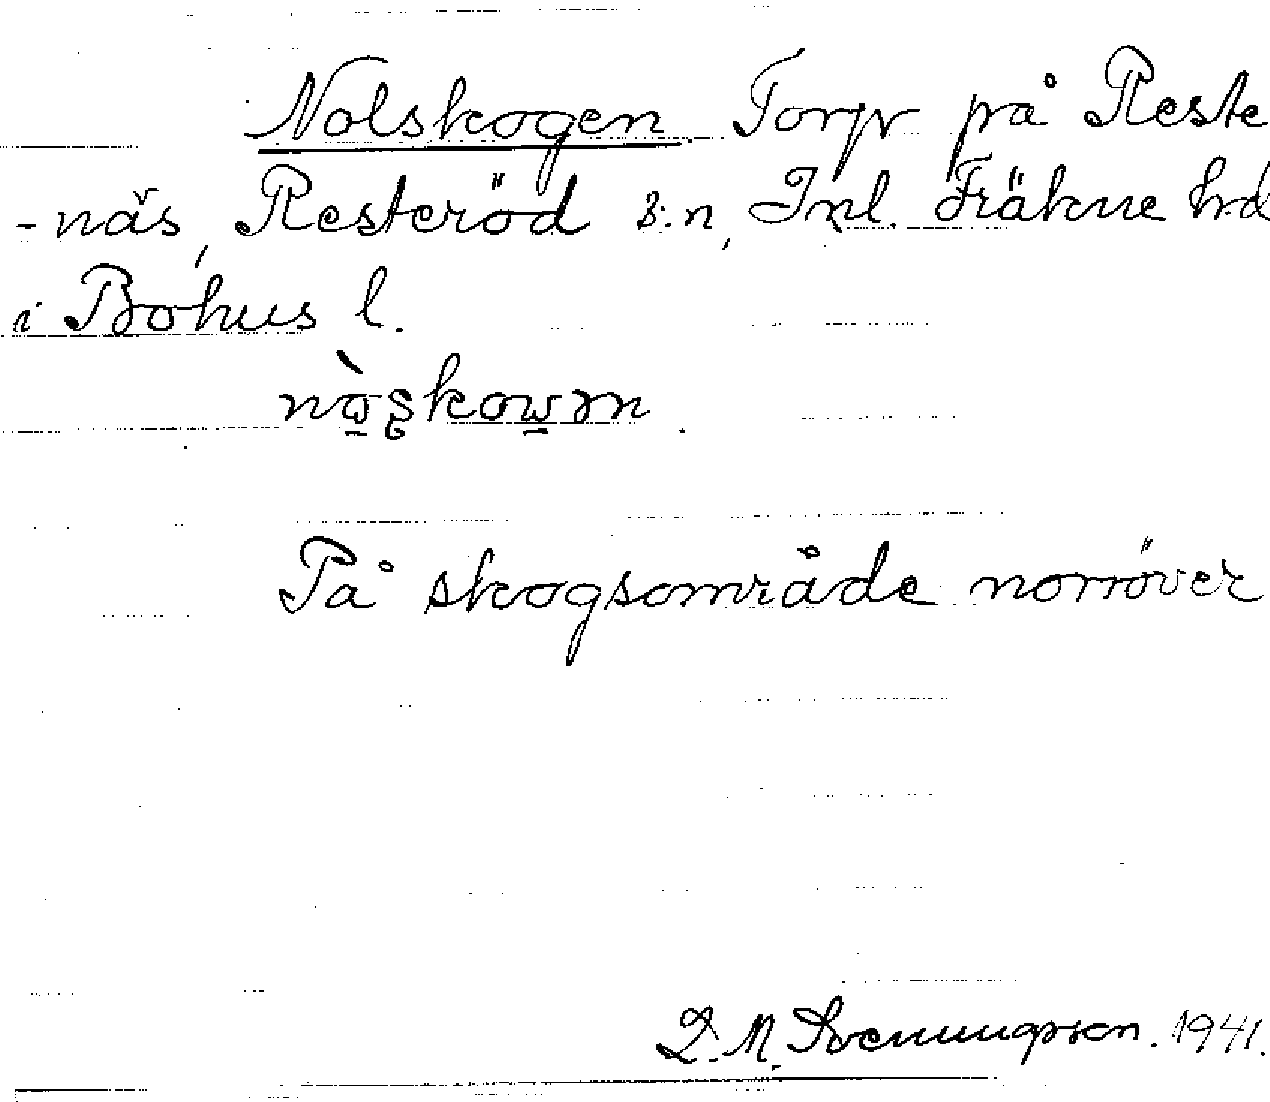 Nolskogen Torp på Reste
-näs, Resteröd s:n, Inl. Fräkne hd
i Bohus l.
På skogsområde norröver
1941.